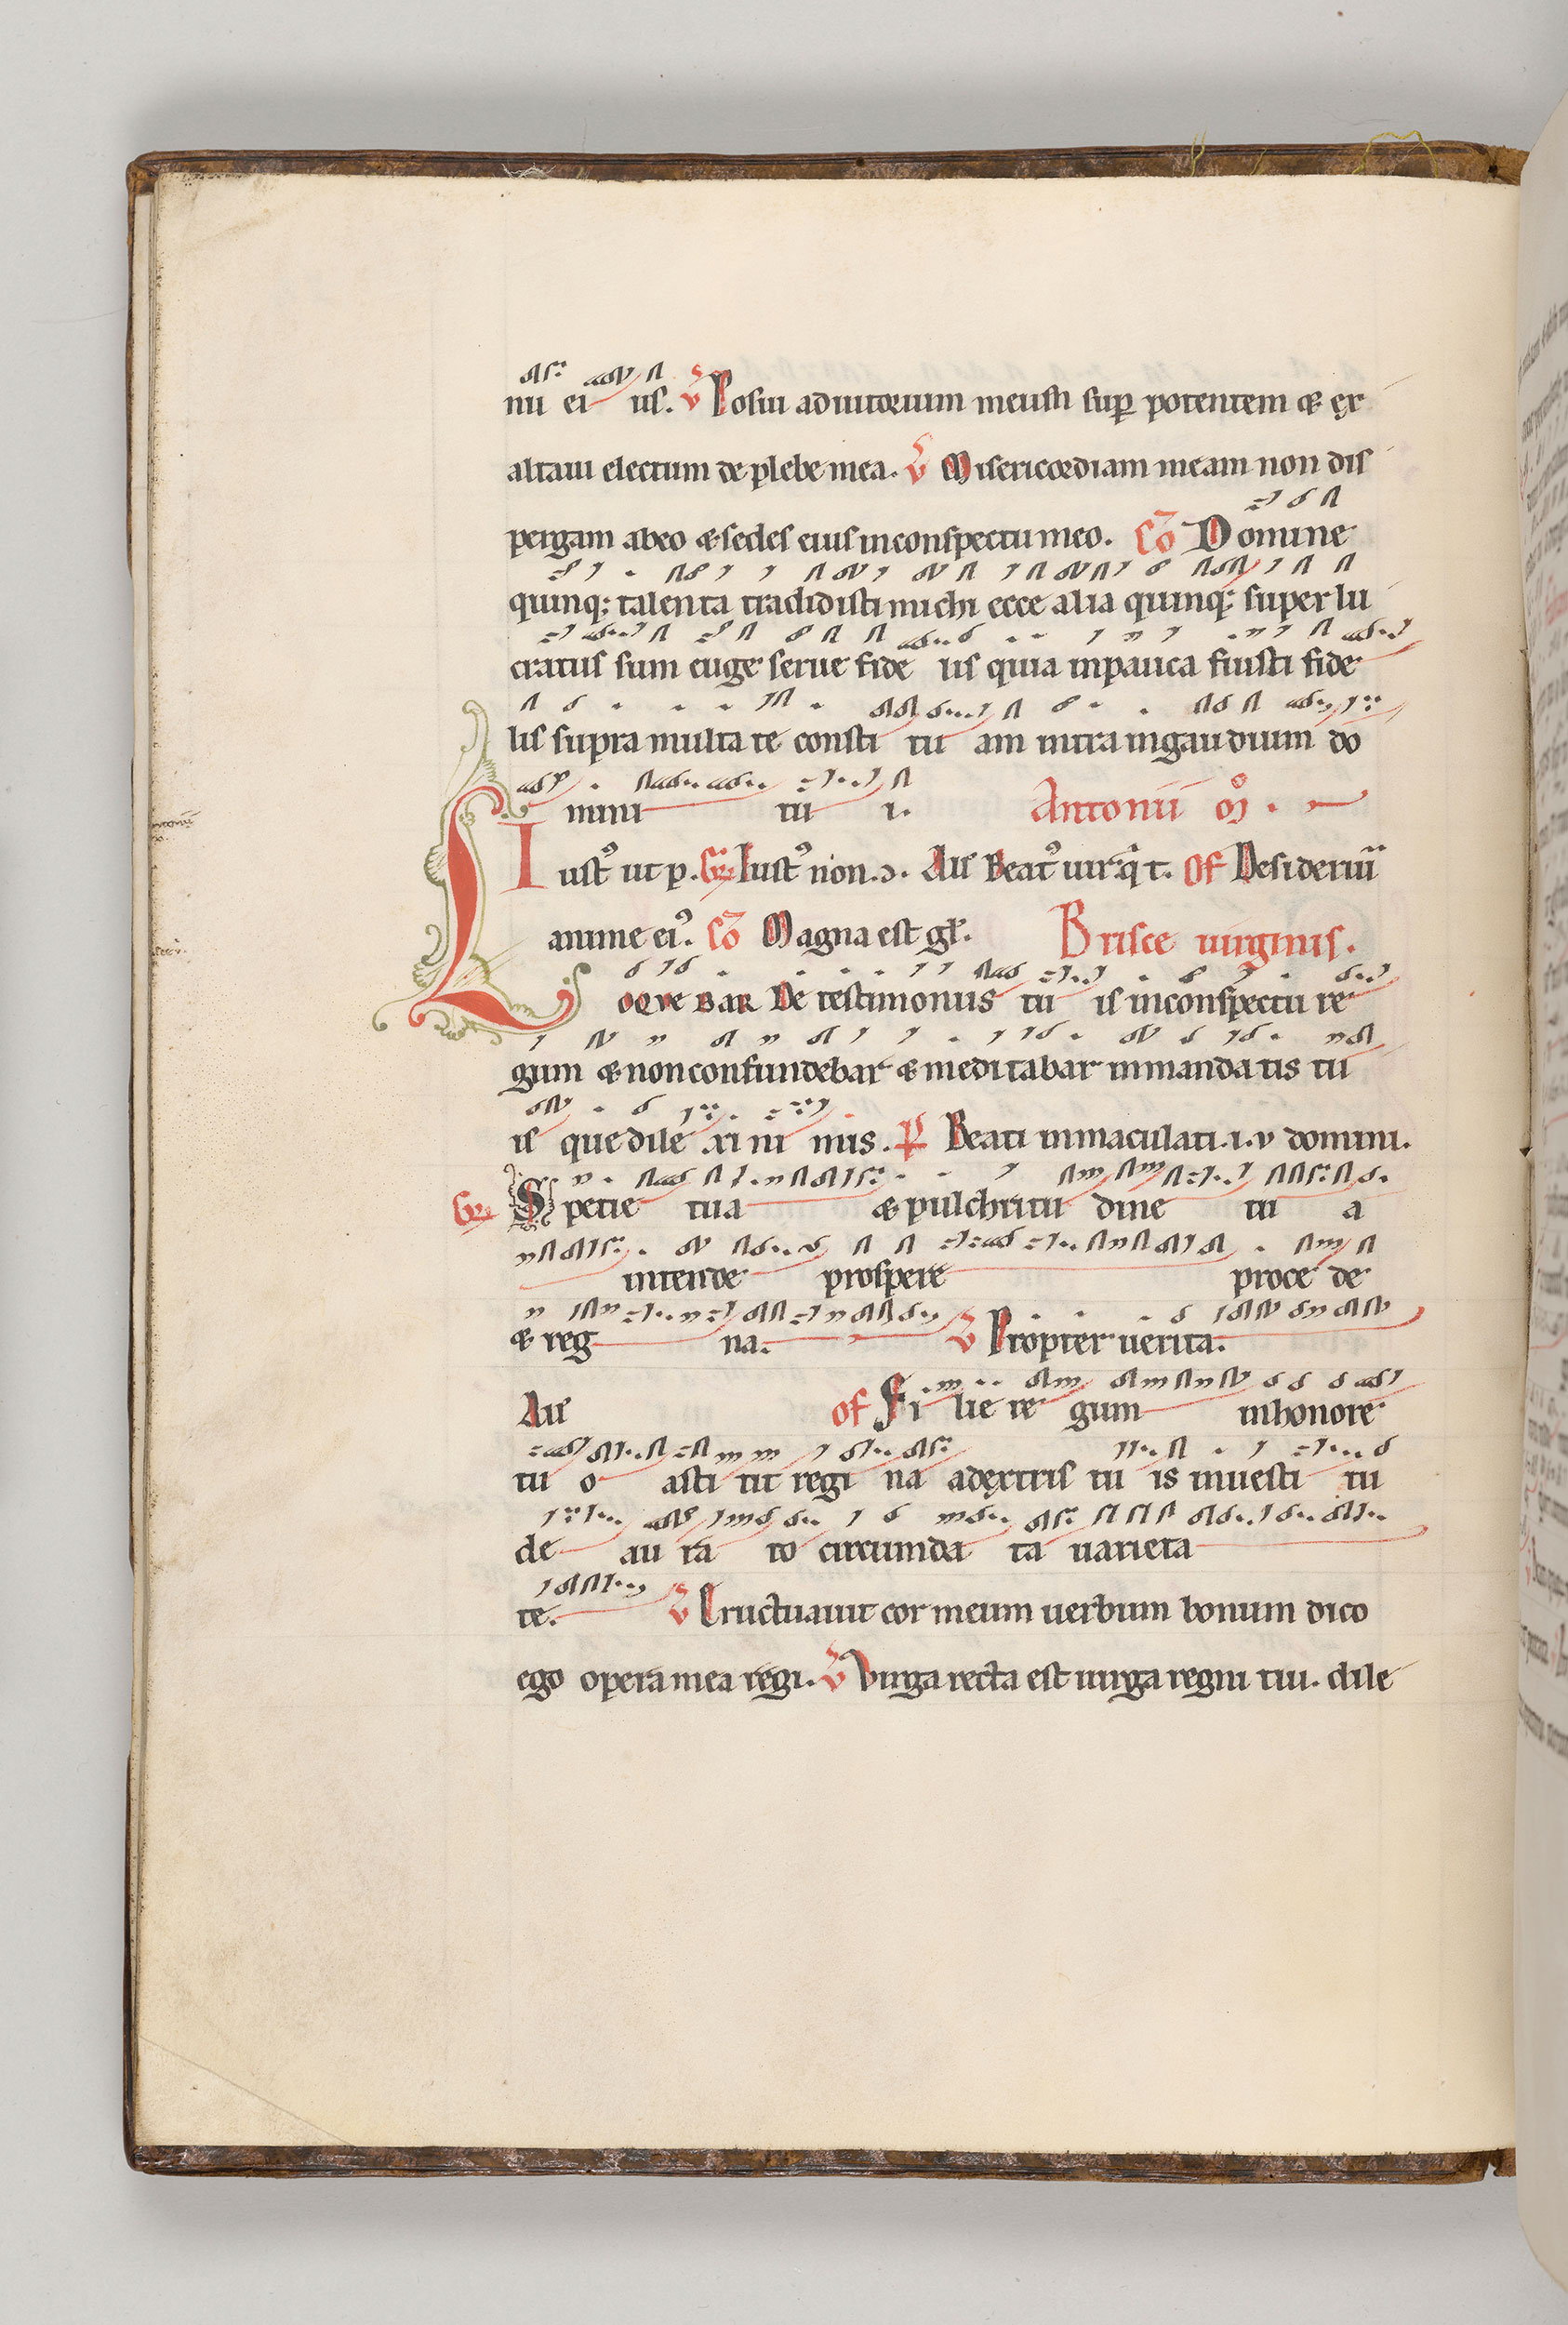 nu ei us. v Posui adiutorium meum sup potentem & ex
altaui electum de plebe mea. v Misericordiam meam non dis
pergam abeo & sedes eius inconspectu meo. Co Domine
quinq; talenta tradidisti michi ecce alia quinq; super lu
cratus sum euge serue fide lis quia inpauca fuisti fide
lis supra multa te consti tu am intra ingaudium do
mini tu i. Antonii
Iust' ut p. Gr Iust' non. Aff Beat' uir q t. Of Desideriu
anime ei'. Co Magna est gl'. Prisce uirginis.
LOQVEBAR De testimoniis tu is inconspectu re
gum & nonconfundebar & meditabar inmandatis tu
is que dile xi ni mis. P Beati inmaculati. i. v domini.
Gr Spetie tua & pulchritu dine tu a
intende prospere proce de
& reg na. v Propter uerita.
All of Fi lie re gum inhonore
tu o asti tit regi na adextris tu is inuesti tu
de au ra to circumda ta uarieta
te. v Eructuauit cor meum uerbum bonum dico
ego opera mea regi. v Virga recta est uirga regni tui. dile